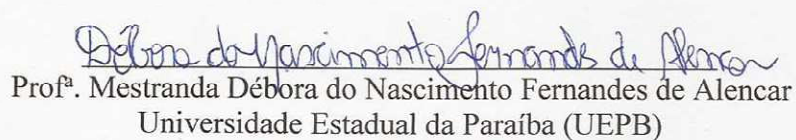 Débora do Nascimento Fernandes de Alencar
Profª. Mestranda Débora do Nascimento Fernandes de Alencar
Universidade Estadual da Paraíba (UEPB)